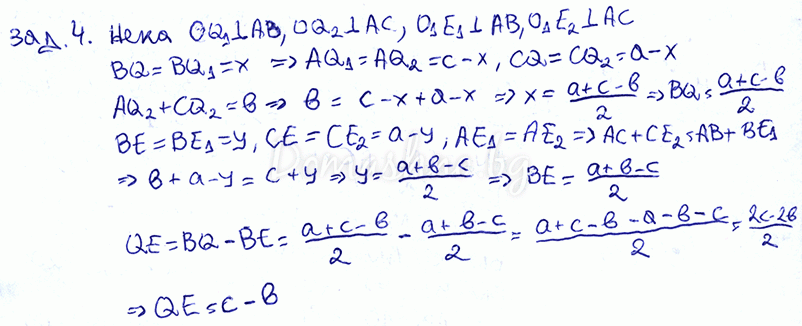 зад. 4. Нека OQ₁⊥AB, OQ₂⊥AC, O₁E₁⊥AB, O₁E₂⊥AC
BQ = BQ₁ = x => AQ₁ = AQ₂ = c - x, CQ = CQ₂ = a - x
AQ₂ + CQ₂ = b => b = c - x + a - x => x = (a+c-b)/2 => BQ = (a+c-b)/2
BE = BE₁ = y, CE = CE₂ = a - y, AE₁ = AE₂ => AC + CE₂ = AB + BE₁
=> b + a - y = c + y => y = (a+b-c)/2 => BE = (a+b-c)/2
QE = BQ - BE = (a+c-b)/2 - (a+b-c)/2 = (a+c-b-a-b-c)/2 = (2c-2b)/2
=> QE = c - b